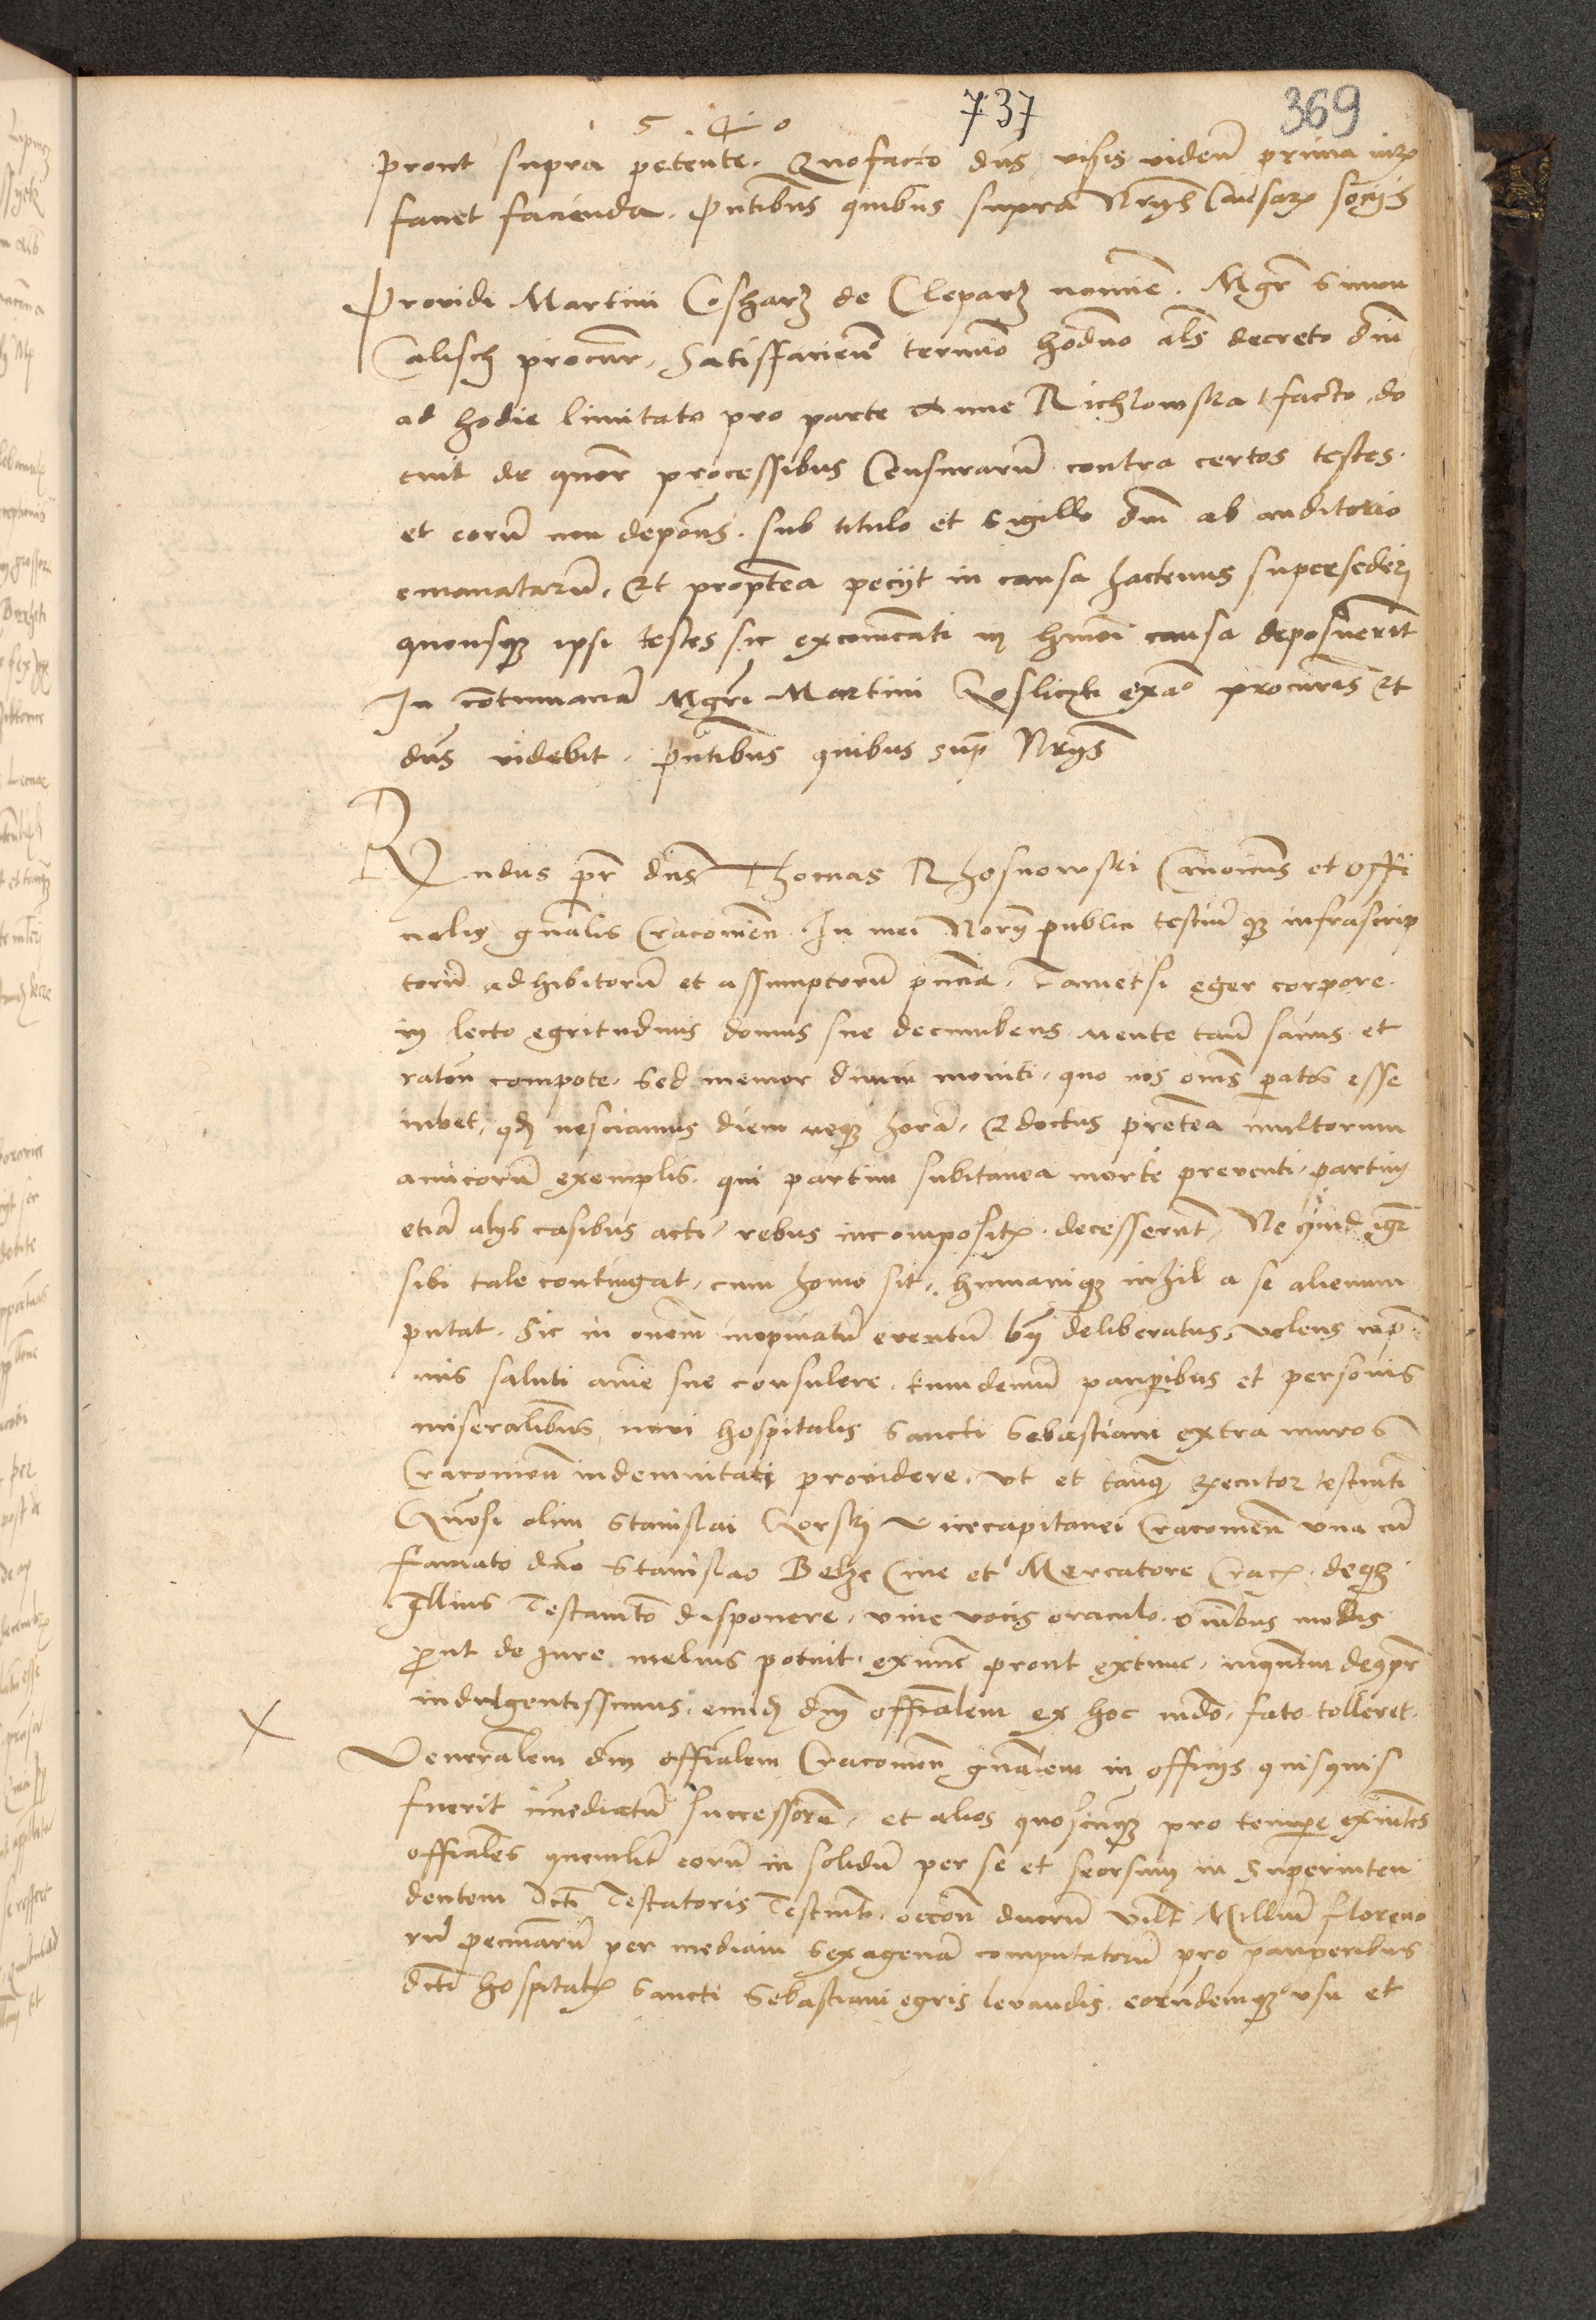 737
369
5.40
prout supra petente. Quofacto dn̄s visis videnđ prima iurꝫ
fauet facienda. Pn̄tibus quibus supra Nrijs Causarꝫ socijs
Prouidi Martini Cosharz de Cleparz nomine. Mgr̄ Simon
Calisch procurr. Satisfacienđ termino hodierno als decreto dn̄i
ad hodie limitato pro parte Anne Richlowska facto, do
cuit de quor̄ processibus Censurarum contra certos testes.
et eorum non depon̄s. sub titulo et sigillo dn̄i ab auditorio
emanatarum, Et proptea pecijt in causa hactenus supersederj
quousqꝫ ipsi testes sic excōicati in hm̄oi causa deposuerint
In cōtumaciā Mgr̄i Martini Cosliczki ex aō procur̄is Et
dn̄s videbit. Pn̄tibus quibus sup̄ Nrijs
Rn̄dus pr̄ dn̄s Thomas Rhosnowski Canonicus et Offi
cialis gn̄alis Cracouien̄. In mei Norij publici testiumqꝫ infrascrip
torum adhibitorum et assumptorum pn̄cia. Tametsi eger corpore.
in lecto egritudinis domus sue decumbens mente tamē sanus et
ration̄ compote. Sed memor diuini moniti, quo nos om̄s paratos esse
iubet, qđ nesciamus diem neqꝫ horā, Edoctus pretea multorum
amicorum exemplis. qui partim subitanea morte preuenti, partim
etiā alijs casibus acti, rebus incompositꝫ. decesserunt, Ne quid igr̄
sibi tale contingat, cum homo sit, humaniqꝫ nihil a se alienum
putat. Sic in om̄em inopinatū euentū deliberatus, volens inp̄
mis saluti aīe sue consulere. Eiusdemū pauꝑibus et personis
miseralibus noui hospitalis Sancti Sebastiani extra muros
Cracouien̄ indemnitati prouidere. Vt et tanqꝫ executor testamti
Gn̄osi olim Stanislai Gorskj Vicecapitanei Cracouien̄ vna cū
Famato dn̄o Stanislao Belze Ciue et Mercatore Cracꝫ. deqꝫ
Illius Testamto disponere, viue vocis oraculo. omnibus modis
prout de Iure melius potuit. exnunc prout extunc. inquntum deq̄ pr̄
indulgentissimus. eundē dn̄m offialem ex hoc mdo, fato tolleret.
X
Veneralem dn̄m offialem Cracouien̄ gn̄alem in officijs quisquis
fuerit immediatū successorem, et alios quoscunqꝫ pro tempore existen̄tes
offiales quemlibet eorum in solidum per se et seorsim in Superinten
dentem dcti Testatoris Testamti. duorum Millium floreno
rū pecuniarū per mediam sexagenā computatorum pro pauperibus
dcti hospitalꝫ Sancti Sebastiani egris leuandis. eorundemqꝫ vsu et